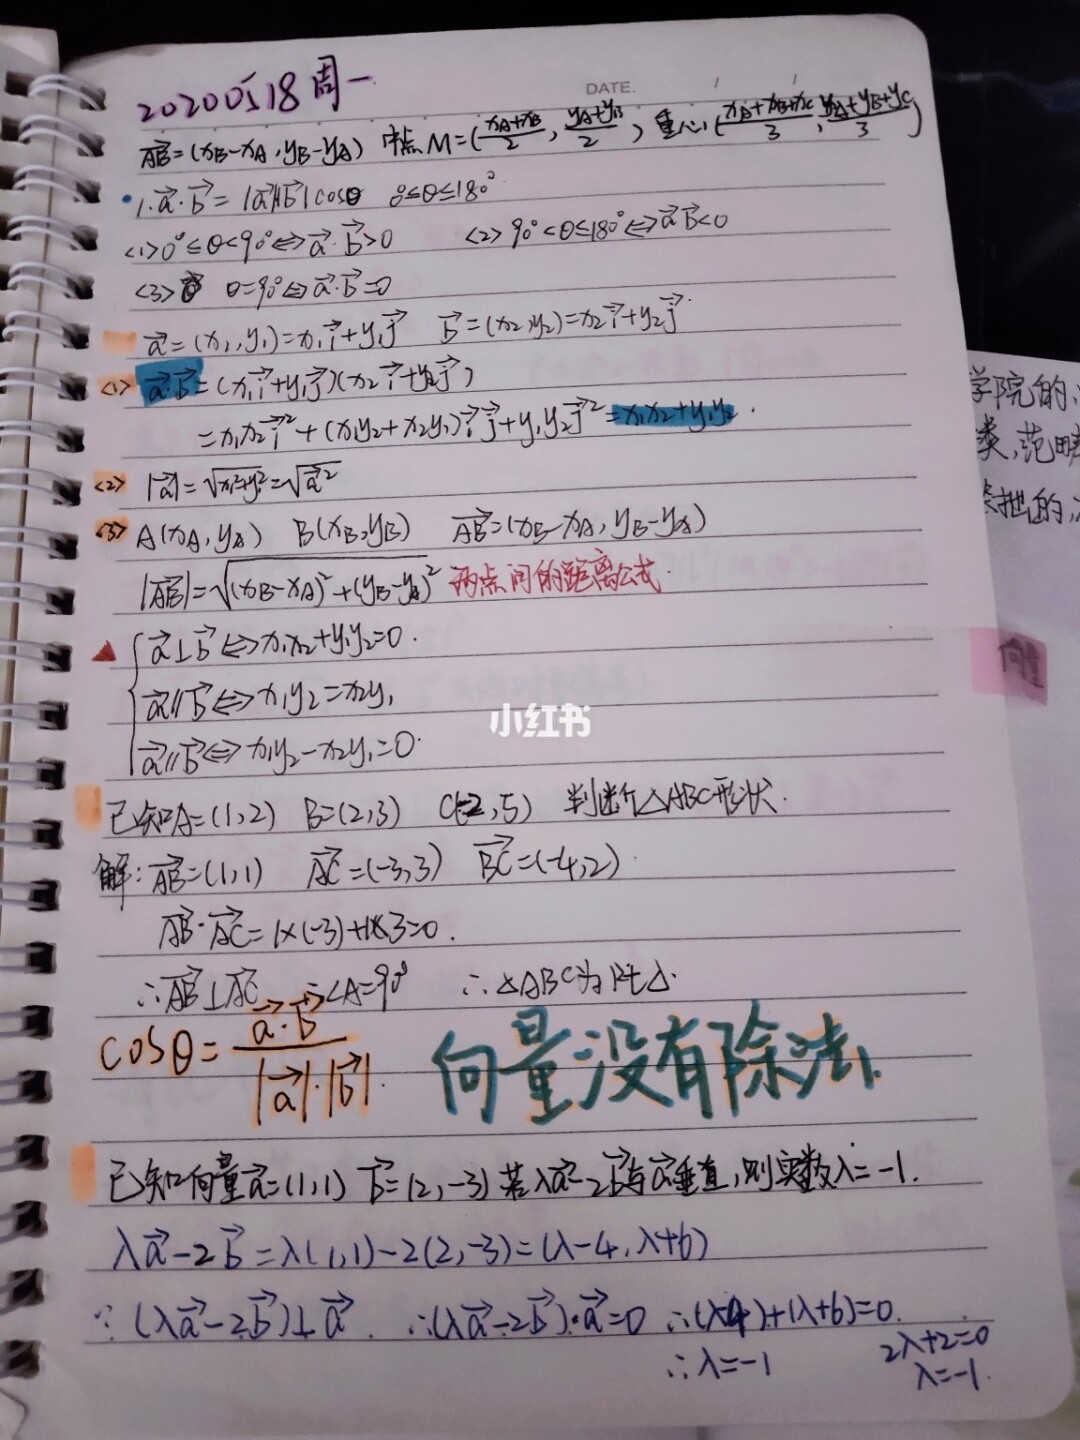 20200518周一
DATE. / /
AB⃗=(xB-xA,yB-yA) 中点M=(xA+xB/2, yA+yB/2), 重心(xA+xB+xC/3, yA+yB+yC/3)
1. a⃗·b⃗=|a⃗||b⃗|cosθ 0°≤θ≤180°
<1>0°≤θ<90°⇔a⃗·b⃗>0 <2>90°<θ≤180°⇔a⃗·b⃗<0
<3> θ=90°⇔a⃗·b⃗=0
a⃗=(x₁,y₁)=x₁i⃗+y₁j⃗ b⃗=(x₂,y₂)=x₂i⃗+y₂j⃗
<1> a⃗·b⃗=(x₁i⃗+y₁j⃗)(x₂i⃗+y₂j⃗)
=x₁x₂i⃗²+(x₁y₂+x₂y₁)i⃗j⃗+y₁y₂j⃗²=x₁x₂+y₁y₂.
<2> |a⃗|=√x₁²+y₁²=√a⃗²
<3> A(xA,yA) B(xB,yB) AB⃗=(xB-xA,yB-yA)
|AB⃗|=√(xB-xA)²+(yB-yA)² 两点间的距离公式.
a⃗⊥b⃗⇔x₁x₂+y₁y₂=0.
a⃗∥b⃗⇔x₁y₂=x₂y₁
a⃗∥b⃗⇔x₁y₂-x₂y₁=0.
向量
小红书
已知A=(1,2) B=(2,3) C(-2,5) 判断△ABC形状.
解:AB⃗=(1,1) AC⃗=(-3,3) BC⃗=(-4,2)
AB⃗·AC⃗=1×(-3)+1×3=0.
∴AB⃗⊥AC⃗ ∴∠A=90° ∴△ABC为Rt△.
cosθ=a⃗·b⃗/|a⃗|·|b⃗|.
向量没有除法.
已知向量a⃗=(1,1) b⃗=(2,-3)若λa⃗-2b⃗与a⃗垂直,则实数λ=-1.
λa⃗-2b⃗=λ(1,1)-2(2,-3)=(λ-4,λ+6)
∵(λa⃗-2b⃗)⊥a⃗ ∴(λa⃗-2b⃗)·a⃗=0 ∴(λ-4)+(λ+6)=0.
2λ+2=0
∴λ=-1 λ=-1.
学院的,
类,范畴